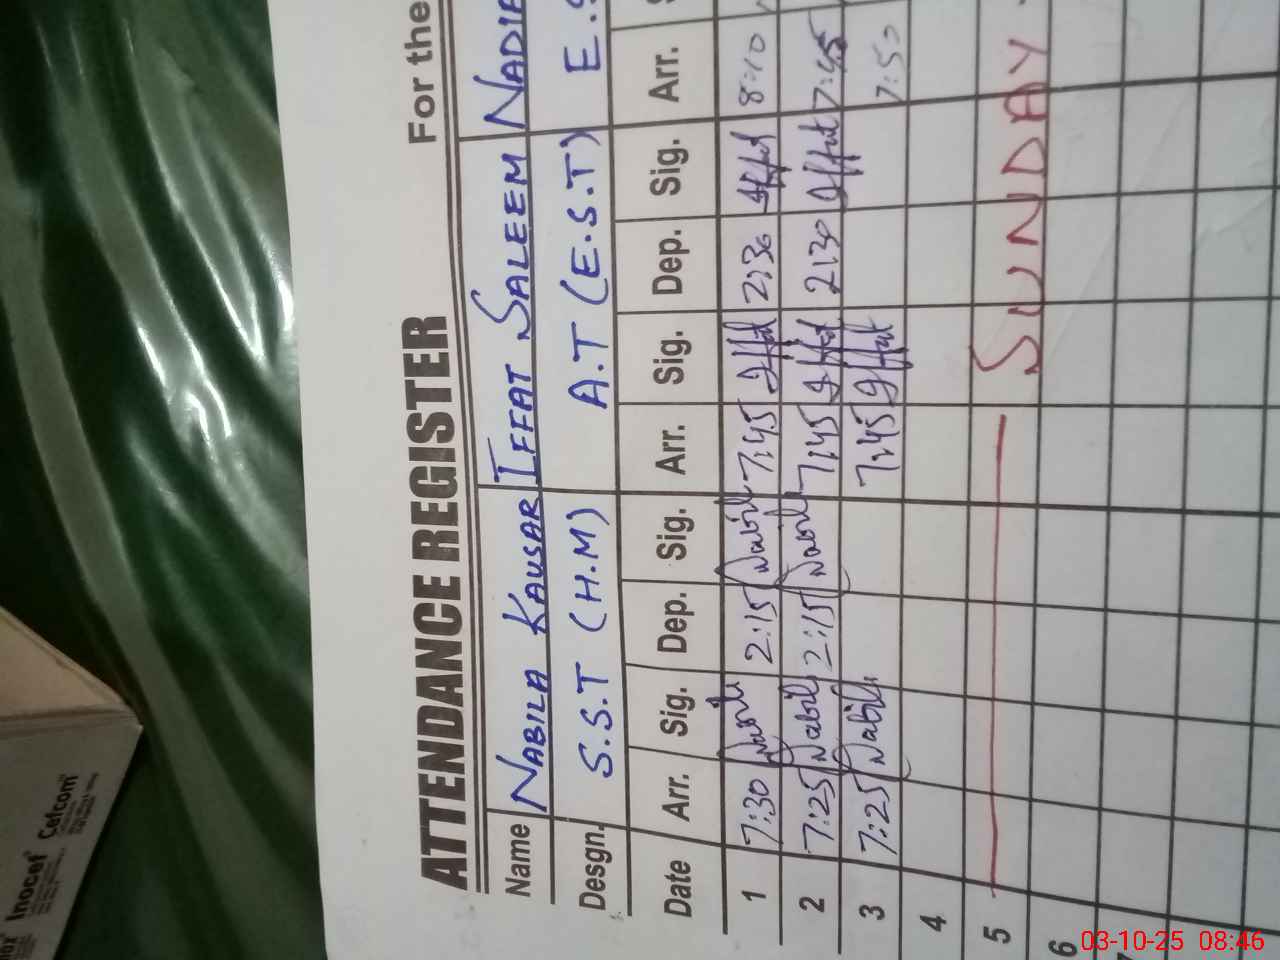 ATTENDANCE REGISTER For the
Name NABILA KAUSAR IFFAT SALEEM NADIA
Desgn. S.S.T (H.M) A.T (E.S.T) E.S
Date Arr. Sig. Dep. Sig. Arr. Sig. Dep. Sig. Arr.
1 7:30 Nabila 2:15 Nabila 7:45 Iffat 2:30 Iffat 8:10
2 7:25 Nabila 2:15 Nabila 7:45 Iffat 2:30 Iffat 7:45
3 7:25 Nabila 7:45 Iffat 7:50
4
5 SUNDAY
6
7
Inocef Cefcom
03-10-25 08:46